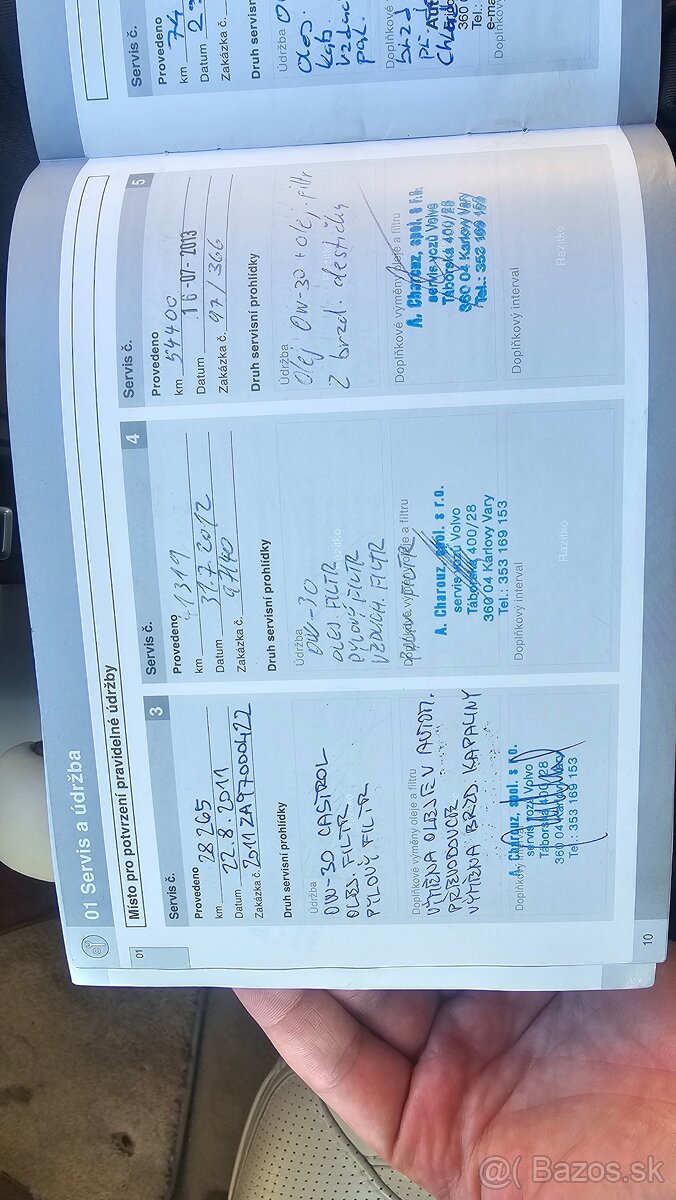 01 Servis a údržba
Místo pro potvrzení pravidelné údržby
01
Servis č. 3
Provedeno
km 28265
Datum 22.8.2011
Zakázka č. 2011ZA97000422
Druh servisní prohlídky
Údržba
0W-30 CASTROL
OLEJ. FILTR
PYLOVÝ FILTR
Doplňkové výměny oleje a filtru
VÝMĚNA OLEJE V AUTOM.
PŘEVODOVCE
VÝMĚNA BRZD. KAPALINY
Doplňkový interval
A. Charouz, spol. s r.o.
servis vozů Volvo
Táborská 400/28
360 04 Karlovy Vary
Tel.: 353 169 153
Servis č. 4
Provedeno
km 41319
Datum 31.7.2012
Zakázka č. 97/40
Druh servisní prohlídky
Údržba
0W-30
OLEJ. FILTR
PYLOVÝ FILTR
VZDUCH. FILTR
Razítko
Doplňkové výměny oleje a filtru
A. Charouz, spol. s r.o.
servis vozů Volvo
Táborská 400/28
360 04 Karlovy Vary
Tel.: 353 169 153
Doplňkový interval
Razítko
Servis č. 5
Provedeno
km 54400
Datum 16-07-2013
Zakázka č. 97/366
Druh servisní prohlídky
Údržba
Olej 0W-30 + olej. filtr
2 brzd. destičky
Doplňkové výměny oleje a filtru
A. Charouz, spol. s r.o.
servis vozů Volvo
Táborská 400/28
360 04 Karlovy Vary
Tel.: 353 169 153
Doplňkový interval
Razítko
10
Servis č.
Provedeno
km 74
Datum 2
Zakázka č.
Druh servisn
Údržba
Doplňkové
Tel.:
e-ma
Doplňkový
@( Bazos.sk